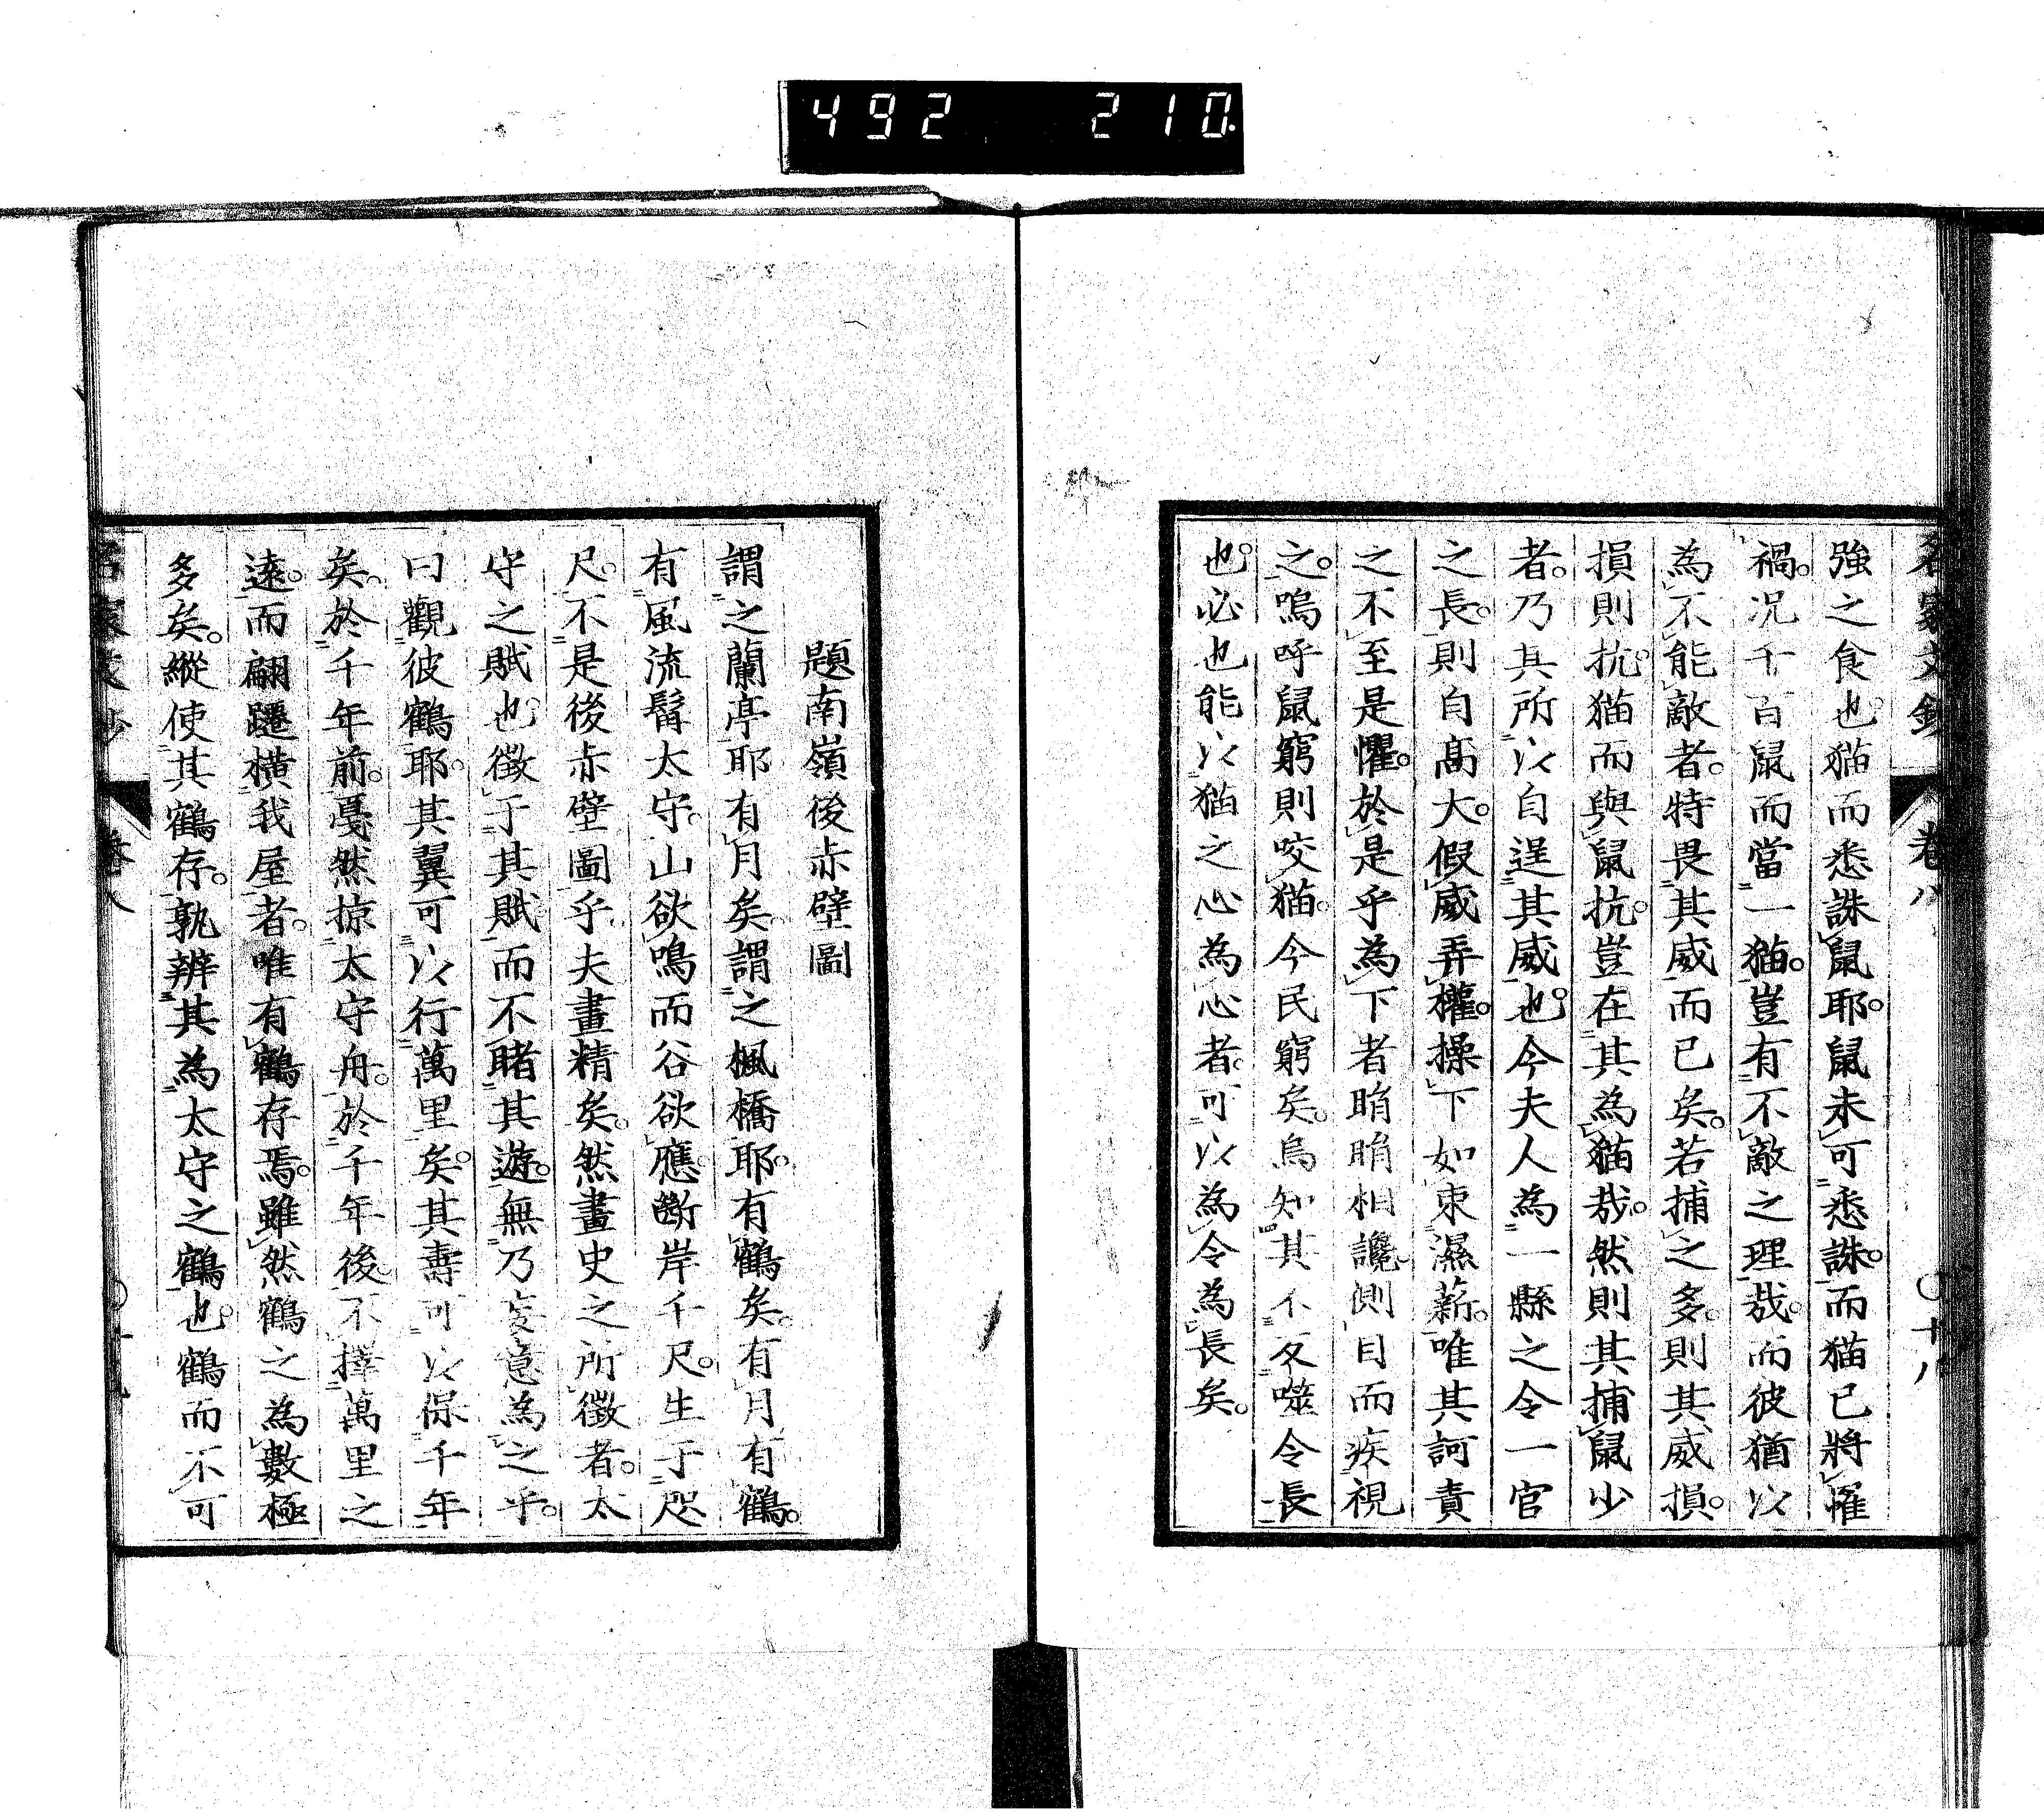 492 210.
名家文鈔 卷八 〇十八
強之食也。猫而悉誅鼠耶。鼠未可悉誅。而猫已將罹
禍。况千百鼠而當一猫。豈有不敵之理哉。而彼猶以
為不能敵者。特畏其威而已矣。若捕之多。則其威損。
損則抗猫而與鼠抗。豈在其為猫哉。然則其捕鼠少
者。乃其所以自逞其威也。今夫人為一縣之令一官
之長。則自高大。假威弄權。操下如束濕薪。唯其訶責
之不至是懼。於是乎為下者睊睊相讒。側目而疾視
之。嗚呼鼠窮則咬猫。今民窮矣。烏知其不反噬令長
也。必也能以猫之心為心者。可以為令為長矣。
題南嶺後赤壁圖
謂之蘭亭耶有月矣。謂之楓橋耶。有鶴矣。有月有鶴。
有風流髯太守。山欲鳴而谷欲應。斷岸千尺。生于咫
尺。不是後赤壁圖乎。夫畫精矣。然畫史之所徵者。太
守之賦也。徵于其賦而不睹其遊。無乃妄意為之乎。
曰觀彼鶴耶。其翼可以行萬里矣。其壽可以保千年
矣。於千年前。戞然掠太守舟。於千年後。不擇萬里之
遠。而翩躚橫我屋者。唯有鶴存焉。雖然鶴之為數極
多矣。縱使其鶴存。孰辨其為太守之鶴也。鶴而不可
名家文鈔 卷八 〇十九